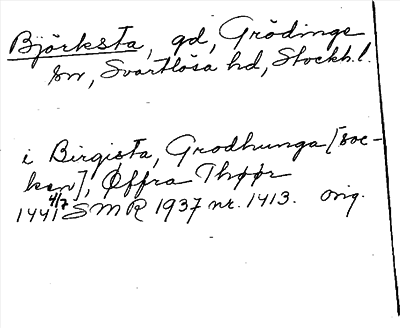 Björksta, gd, Grödinge
sn, Svartlösa hd, Stockh.l.
i Birgista, Grodhunga [soc-
ken], Øffra Thøør
1441 4/7 SMR 1937 nr. 1413. orig.